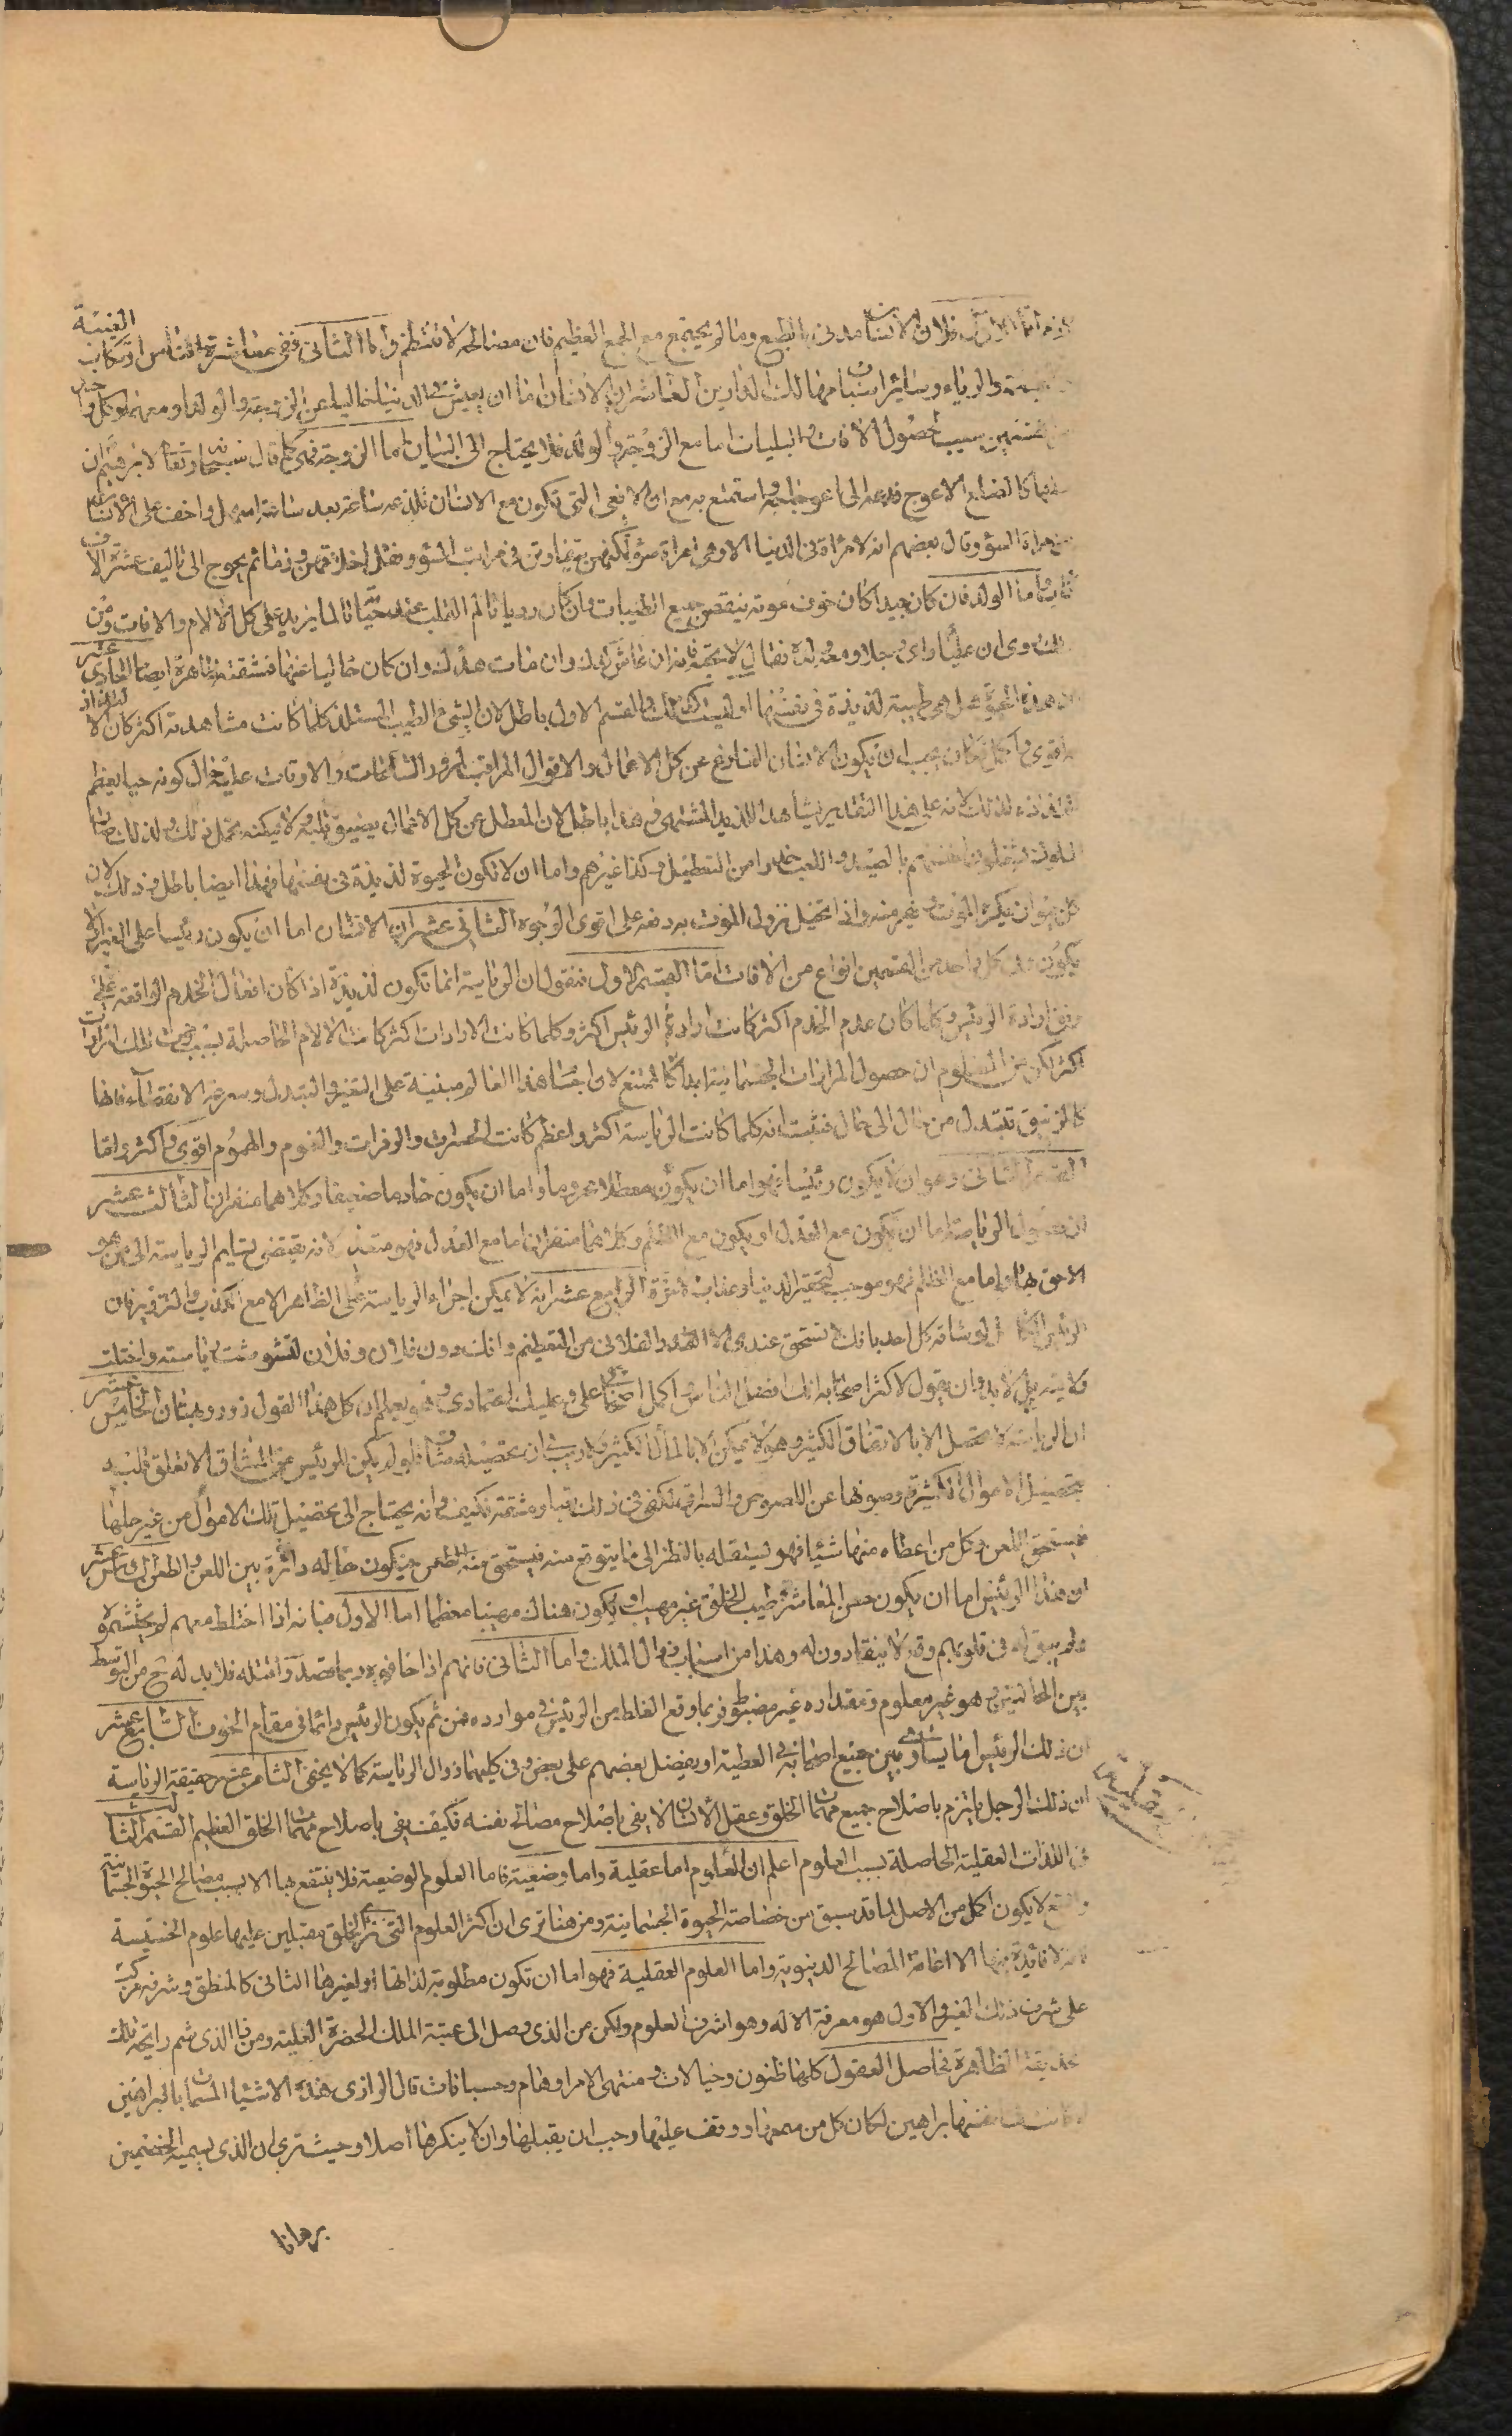 اما الاول فلان الانسان مدنى بالطبع وما لم يجتمع مع الجمع العظيم فان مصالحه لا تنتظم واما الثانى ففى معاشرة الناس ارتكاب الغيبة
والرياء وسائر اسبابها مهالك الدارين العاشر ان الانسان اما ان يعيش فى الدنيا خاليا عن الزوجة والولد او معهما وكل واحد
القسمين سبب لحصول الافات والبليات اما مع الزوجة والولد فلا يحتاج الى البيان اما الزوجة فهى كما قال سبحانه وتعالى
كالضلع الاعوج فدعه الى اعوجاجه واستمتع به مع ان الافعى التى تكون مع الانسان تلذعه ساعة بعد ساعة اسهل واخف على الانسان
من امراة السؤ وقال بعضهم انه لا امراة فى الدنيا الا وهى امراة سؤ لكنهن يتفاوتن فى مراتب السؤ ونقل اخلاقهن وذمائمهم يحوج الى تاليف عشرة الاف
كتاب واما الولد فان كان جيدا كان خوف موته ينقص جميع الطيبات وان كان رديا تالم القلب عند حياته تالما يزيد على كل الالام والافات ومن
ذلك روى ان عليا راى رجلا ومعه ولده فقال لا تحبه فانه ان عاش كدك وان مات هدك وان كان خاليا عنها فمشقته ظاهرة ايضا الحادى عشر
ان هذه الحيوة هل هى طيبة لذيذة فى نفسها او ليست كذلك والقسم الاول باطل لان الشىء الطيب المستلذ كلما كانت مشاهدته اكثر كان الالتذاذ
به اقوى واكمل فكان يجب ان يكون الانسان الفارغ عن كل الاعمال والاقوال المراقب لمرور الساعات والاوقات عليه حال كونه حيا يعظم
التذاذه لذلك لانه على هذا التقدير يشاهد اللذيذ المشتهى وهذا باطل لان المعطل عن كل الاعمال يضيق قلبه ولا يمكنه تحمل ذلك ولذلك
الملوك يشغلون انفسهم بالصيد واللعب حذرا من التعطيل وكذا غيرهم واما ان لا تكون الحيوة لذيذة فى نفسها فهذا ايضا باطل وذلك لان
كل حيوان يكره الموت وينفر منه واذا تخيل نزول الموت به دفعه على اقوى الوجوه الثانى عشر ان الانسان اما ان يكون رئيسا على الغير او لا
يكون وفى كل واحد من القسمين انواع من الافات اما القسم الاول فنقول ان الرياسة انما تكون لذيذة اذا كان افعال الخدم الواقعة على
وفق ارادة الرئيس وكلما كان عدم الخدم اكثر كانت ارادة الرئيس اكثر وكلما كانت الارادات اكثر كانت الالام الحاصلة بسبب فوت تلك المرادات
اكثر لكن من المعلوم ان حصول المرادات الجسمانية ابدا كالممتنع لان اجسام هذا العالم مبنية على التغير والتبدل وسرعة الانقضاء فانها
كالزيبق تتبدل من حال الى حال فثبت انه كلما كانت الرياسة اكثر واعظم كانت الحسرات والزفرات والغموم والهموم اقوى واكثر واما
القسم الثانى وهو ان لا يكون رئيسا فهو اما ان يكون معطلا محروما واما ان يكون خادما ضعيفا وكلاهما منفران الثالث عشر
ان حصول الرياسة اما ان يكون مع العدل او يكون مع الظلم وكلاهما منفران اما مع العدل فهو متعذر لانه يقتضى تسليم الرياسة الى من هو
الاحق بها واما مع الظلم فهو موجب لتحقير الدنيا وعذاب الاخرة الرابع عشر انه لا يمكن اجراء الرياسة على الظاهر الا مع الكذب والتزوير فان
الرئيس لو شافه كل احد بانك لا تستحق عندى الا القدر الفلانى من التعظيم وانك دون فلان وفلان لتشوشت رياسته واختلت
ولايته بل لا بد وان يقول لاكثر اصحابه انك افضل الناس واكمل اصحابى على وعليك اعتمادى وهو يعلم ان كل هذا القول زور وبهتان الخامس عشر
ان الرياسة لا تحصل الا بالانفاق الكثير وهو لا يمكن الا بالمال الكثير ولا ريب فى ان تحصيله شاق فلو لم يكن للرئيس من المشاق الا تعلق قلبه
بتحصيل الاموال الكثيرة وصونها عن اللصوص والسراق لكفى فى ذلك تعبا ومشقة فكيف وانه يحتاج الى تحصيل تلك الاموال من غير حلها
فيستحق اللعن وكل من اعطاه منها شيئا فهو يستقله بالنظر الى ما يتوقع منه فيستحق منه الطعن فيكون حاله دائرة بين اللعن والطعن السادس عشر
ان هذا الرئيس اما ان يكون حسن المعاشرة طيب الخلق غير مهيب او يكون هناك مهيبا معظما اما الاول فبانه اذا اختلط معهم لم يحتشموه
ولم يبق له فى قلوبهم وقع فلا ينقادون له وهذا من اسباب زوال الملك واما الثانى فانهم اذا خافوه ربما قصدوا قتله فلا بد له ح من التوسط
بين الحالتين وهو غير معلوم ومقداره غير مضبوط فربما وقع الغلط من الرئيس فى موارده فمن ثم يكون الرئيس دائما فى مقام الخوف السابع عشر
ان ذلك الرئيس اما يساوى بين جميع اصحابه فى العطية او يفضل بعضهم على بعض وفى كليهما زوال الرياسة كما لا يخفى الثامن عشر حقيقة الرياسة
ان ذلك الرجل يلتزم باصلاح جميع مهمات الخلق وعقل الانسان لا يفى باصلاح مصالح نفسه فكيف يفى باصلاح مهمات الخلق العظيم القسم الثالث
فى اللذات العقلية الحاصلة بسبب العلوم اعلم ان العلوم اما عقلية واما وضعية فاما العلوم الوضعية فلا ينتفع بها الا بسبب مصالح الحيوة الجسمانية
والفرع لا يكون اكمل من الاصل لما قد سبق من خساسة الحيوة الجسمانية ومن هنا ترى ان اكثر العلوم التى ترى الخلق مقبلين عليها علوم الخسيسة
لا فائدة فيها الا اقامة المصالح الدنيوية واما العلوم العقلية فهو اما ان تكون مطلوبة لذاتها او لغيرها الثانى كالمنطق وشرفه مرتب
على شرف ذلك الغير والاول هو معرفة الاله وهو اشرف العلوم ولكن من الذى وصل الى عتبة الملك الحضرة العلية ومن الذى شم رايحة تلك
الحديقة الظاهرة فحاصل العقول كلها ظنون وخيالات ومنتهى الامر اوهام وحسبانات قال الرازى هذه الاشياء المسمات بالبراهين
لو كانت فى نفسها براهين لكان كل من سمعها ووقف عليها وجب ان يقبلها وان لا ينكرها اصلا وحيث ترى ان الذى يسميه احد الخصمين
برهانا